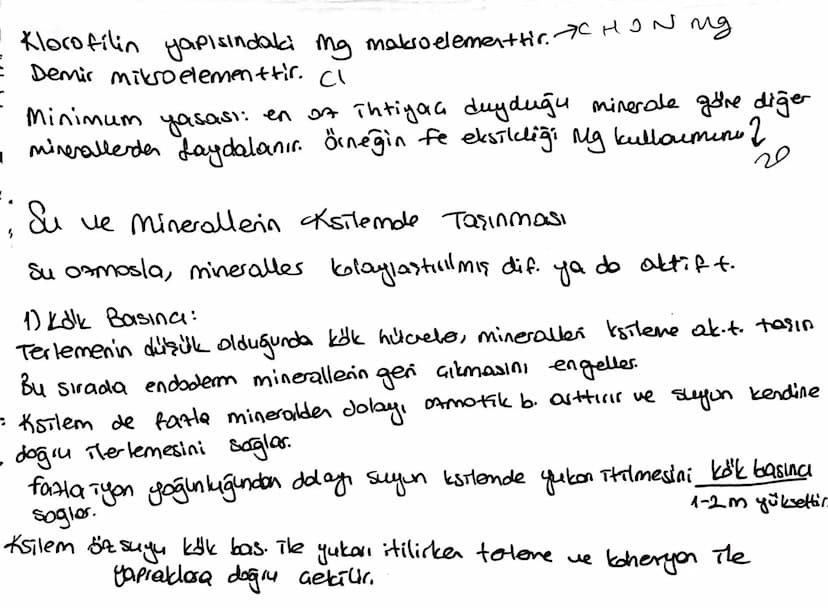 Klorofilin yapısındaki Mg makroelementtir. → C H O N Mg
Demir mikroelementtir. Cl
Minimum yasası: en az ihtiyaç duyduğu minerale göre diğer
minerallerden faydalanır. Örneğin Fe eksikliği Mg kullanımını
Su ve Minerallerin Ksilemde Taşınması
Su ozmosla, mineraller kolaylaştırılmış dif. ya da aktif t.
1) Kök Basıncı:
Terlemenin düşük olduğunda kök hücreler, mineralleri ksileme ak.t. taşın
Bu sırada endoderm minerallerin geri çıkmasını engeller.
Ksilem de fazla mineralden dolayı ozmotik b. arttırır ve suyun kendine
doğru ilerlemesini sağlar.
fazla iyon yoğunluğundan dolayı suyun ksilemde yukarı itilmesini kök basıncı
sağlar. 1-2 m yükseltir.
Ksilem öz suyu kök bas. ile yukarı itilirken terleme ve kohezyon ile
yapraklara doğru çekilir.